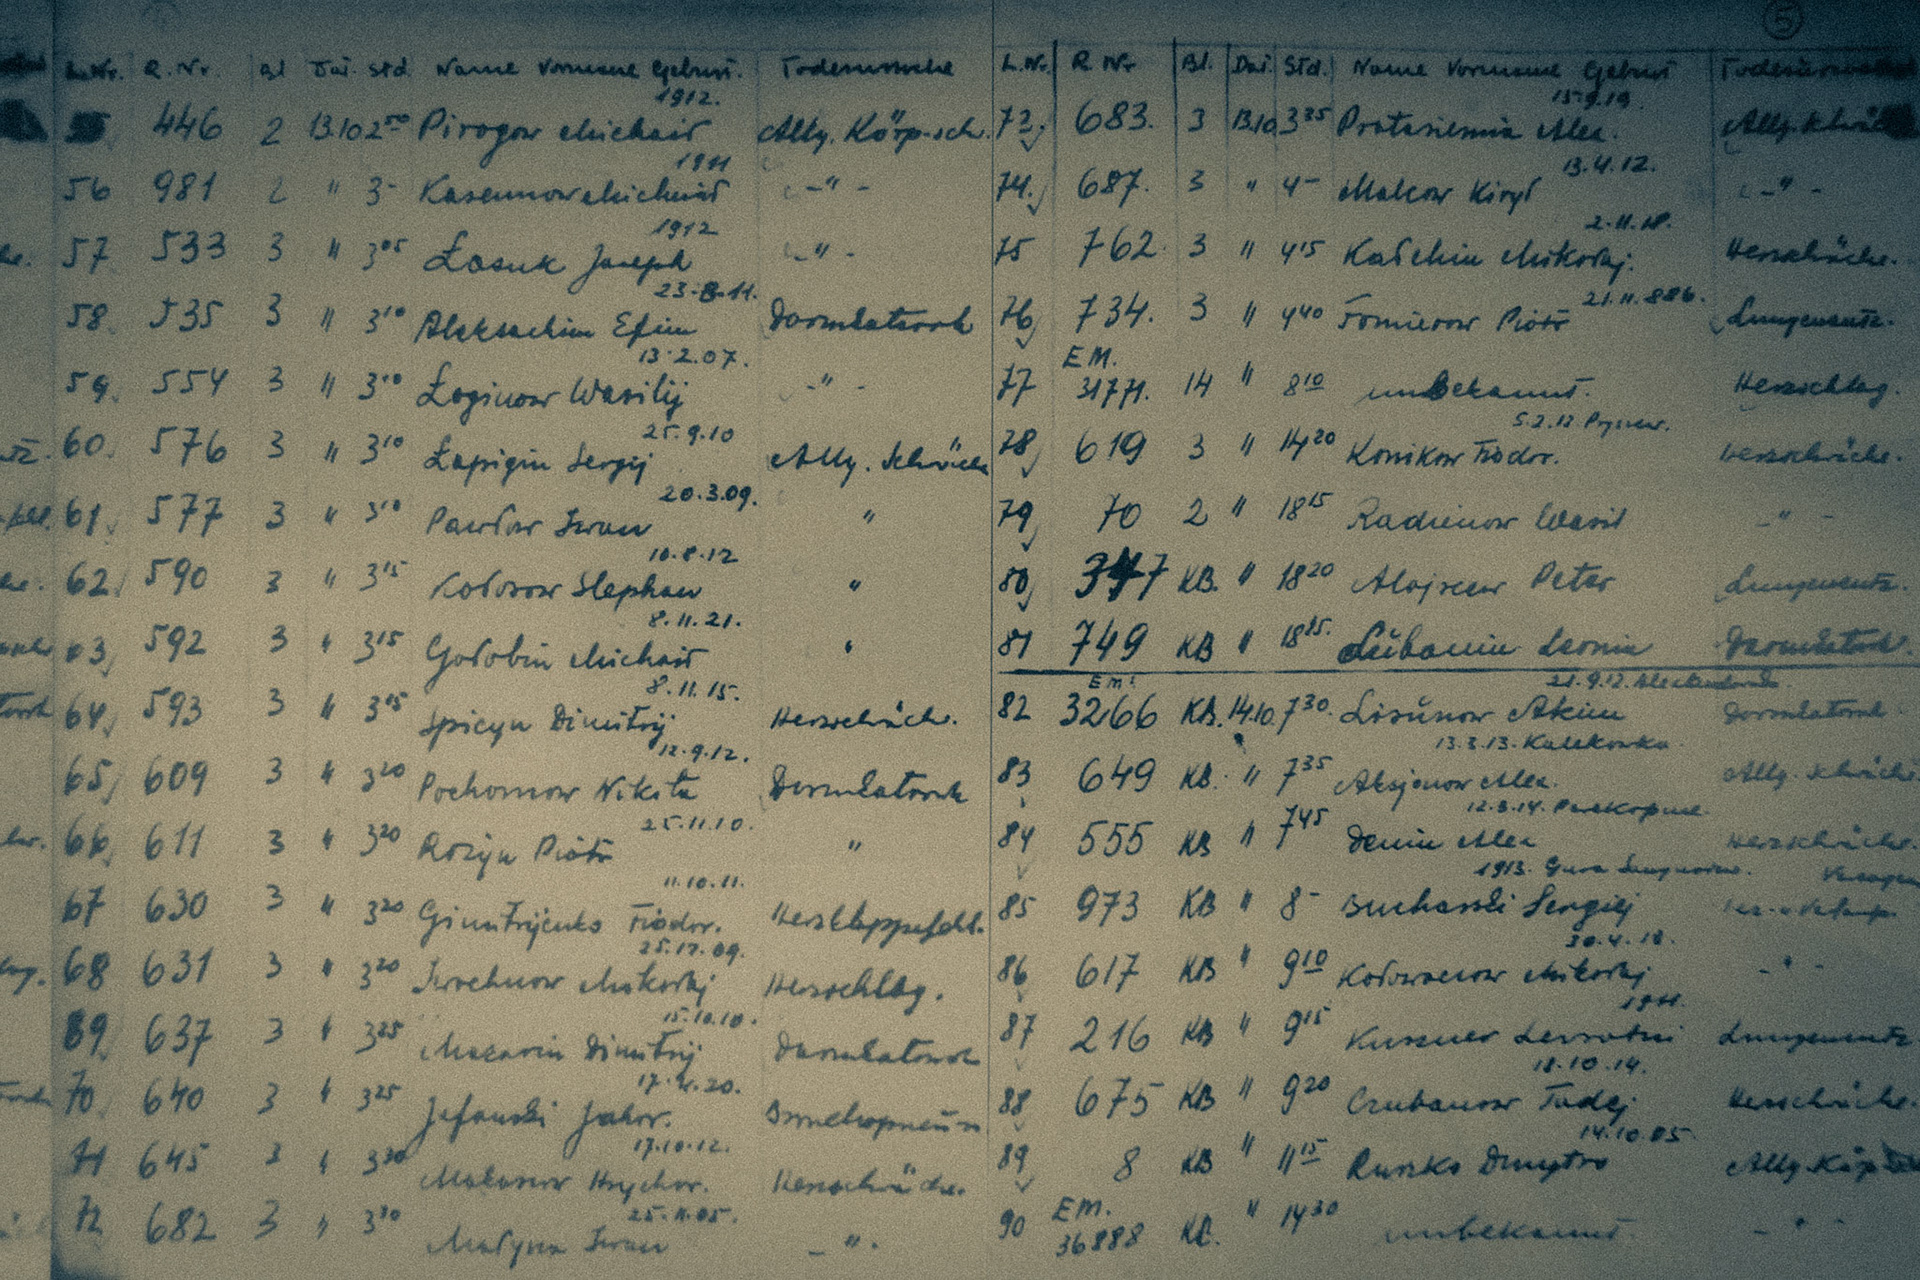 5
L.Nr. R.Nr. Bl Dat. Std. Name Vorname Geburt. Todesursache
446 2 13.10 2⁵⁰ Pirogow Michaił 1912. Allg. Körp.sch.
56 981 2 " 3- Michaił 1911 -"-
57 533 3 " 3⁰⁵ Łasuk Joseph 1912 -"-
58. 535 3 " 3¹⁰ Aleksachin Efim 23.8.11. Darmkatarrh
59. 554 3 " 3¹⁰ Łoginow Wasilij 13.2.07. -"-
60. 576 3 " 3¹⁰ Łapigin Sergij 25.9.10 Allg. Schwäche
61. 577 3 " 3¹⁰ Pawłow Iwan 20.3.09. "
62. 590 3 " 3¹⁵ Kołosow Stephan 10.8.12 "
63. 592 3 " 3¹⁵ Gołobin Michaił 8.11.21. "
64. 593 3 " 3¹⁵ Spicyn Dimitrij 8.11.15. Herzschwäch.
65. 609 3 " 3²⁰ Pochomow Nikita 12.9.12. Darmkatarrh
66. 611 3 " 3²⁰ Rozyn Piotr 25.11.10. "
67 630 3 " 3²⁰ Fiodor. 11.10.11. Herzklappfehl.
68 631 3 " 3²⁰ Mikołaj 25.12.09. Herzschlag.
69. 637 3 " 3²⁵ Dimitrij 15.10.10. Darmkatarrh
70. 640 3 " 3²⁵ Jefanski Jakow. 17.4.20.
71 645 3 " 3³⁰ Makarow Hrychor. 17.10.12. Herzschwäche.
72 682 3 " 3³⁰ Małyna Iwan 25.11.05. -"-
L.Nr. R.Nr Bl. Dat. Std. Name Vorname Geburt Todesursache
73. 683. 3 13.10. 3³⁵ Alex. 15.9.19. Allg. Schwäche
74. 687. 3 " 4- Malcow Kirył 13.4.12. -"-
75 762 3 " 4¹⁵ Kałchin Mikołaj. 2.11.18. Herzschwäche.
76 734. 3 " 4⁴⁰ Piotr 21.11.886. Lungenentz.
77 EM. 31771. 14 " 8¹⁰ unbekannt. Herzschlag.
78 619 3 " 14²⁰ Konikow Fiodor. 5.2.12 Herzschwäche.
79 70 2 " 18¹⁵ Radzienow Wasil -"-
80 347 KB. " 18²⁰ Peter Lungenentz.
81 749 KB " 18²⁵. Leonin Darmkatarrh.
82 Em. 3266 KB. 14.10. 7³⁰. Lisünow Akim 21.9.12. Darmkatarrh
83 649 KB. " 7³⁵ Aksjonow Alex. 13.3.13. Kulikowka Allg. Schwäche
84 555 KB " 7⁴⁵ Denin Alex 12.3.14. Herzschwäche.
85 973 KB " 8- Bucharski Sergiej 1913.
86 617 KB " 9¹⁰ Mikołaj 30.4.18. -"-
87 216 KB " 9¹⁵ 1911. Lungenentz.
88 675 KB " 9²⁰ Czubanow Tadej 18.10.14. Herzschwäche.
89 8 KB " 11¹⁵ Ruszko Dmytro 14.10.05 Allg. Körp.
90 EM. 36888 KB. " 14³⁰ unbekannt. -"-